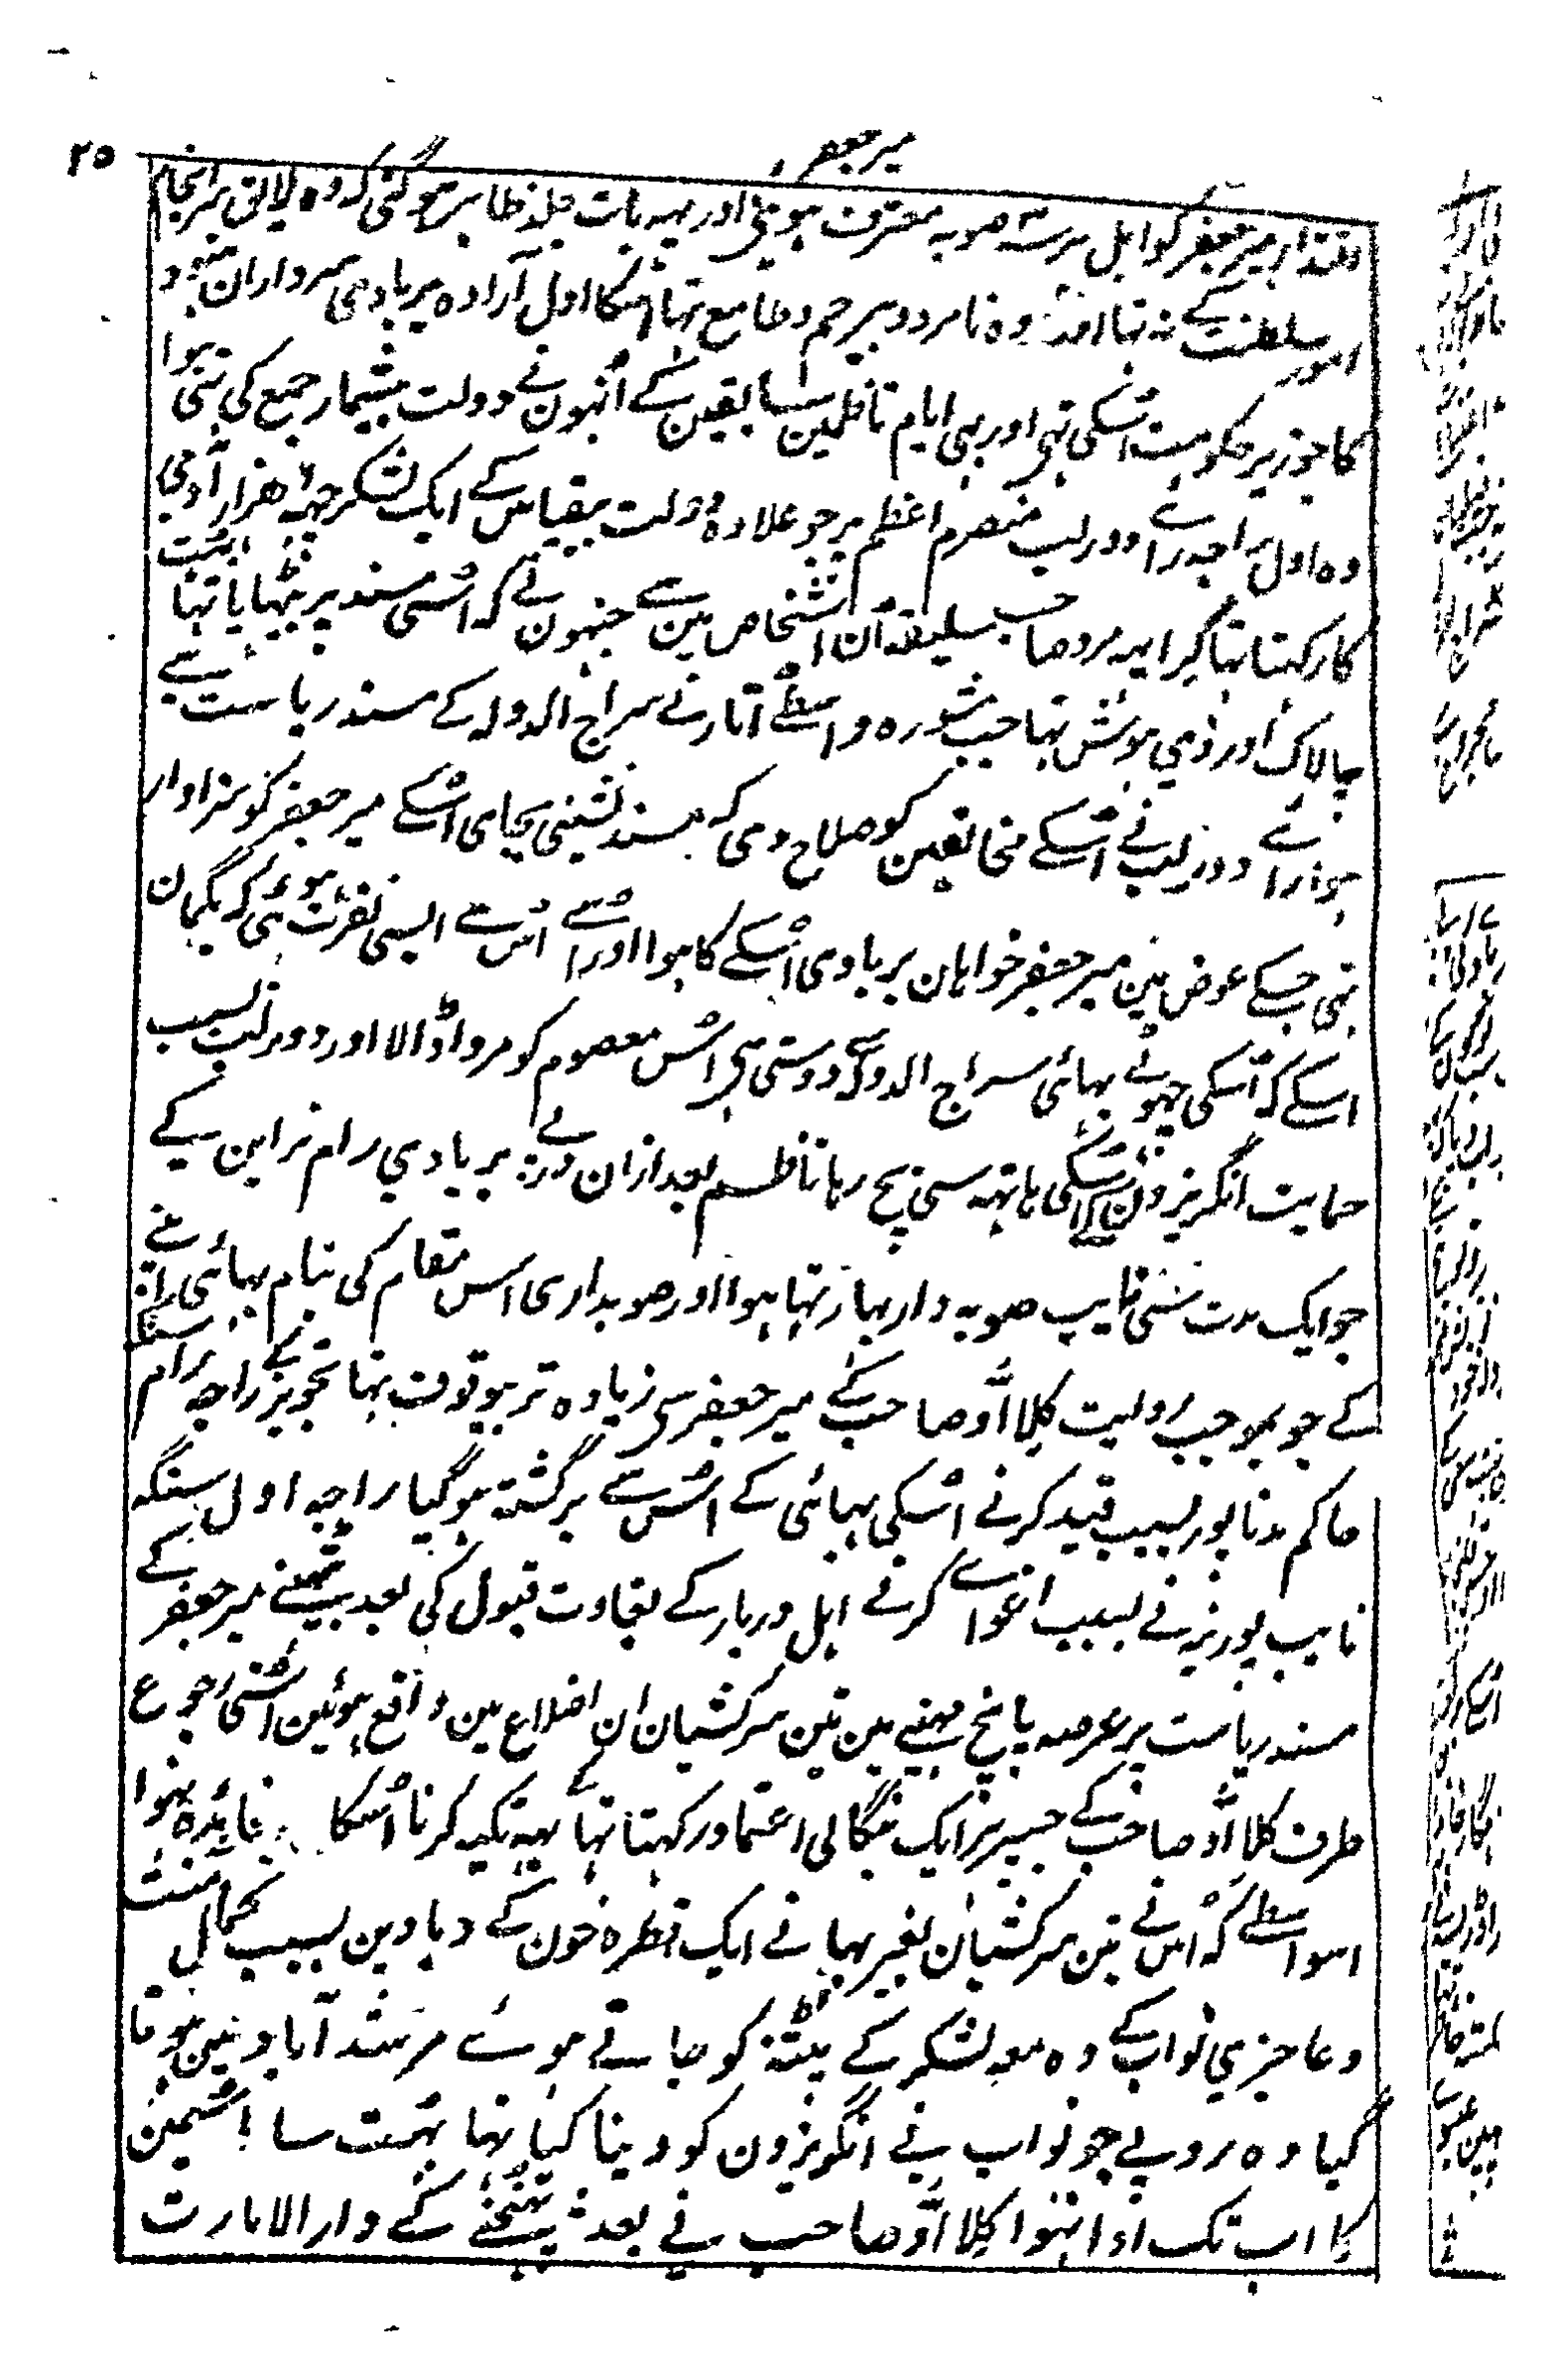 میر جعفر
۲۵
اقتدار میر جعفر کو اہل ہر سہ صوبہ معترف ہوئی اور یہہ بات جلد ظاہر ہو گئی کہ وہ لایق سر انجام
امور سلطنت کے نہ تہا وہ نامرد و بیرحم و طامع تہا اُسکا اول آرادہ بربادی سرداران ہنود
کا جو زیر حکومت اُسکی تہی اور بہی ایام ناظمین سابقین کے اُنہون نے دولت بیشمار جمع کی تہی ہوا
وہ اول راجہ راے دورلب منصرم اعظم پر جو علاوہ دولت بیقیاس کے ایک لشکر چہہ ہزار آدمی
کا رکہتا تہا گرا یہہ مرد صاحب سلیقہ اُن اشخاص مین سے جنہون نے کہ اُسی مسند پر بٹہایا تہا بہت
چالاک اور ذی ہوش تہا جب مشورہ واسطے اُتارنے سراج الدولہ کے مسند ریاست سے
ہوا راے دورلب نے اُسکے مخالفین کو صلاح دی کہ مسند نشینی بجای اُسکے میر جعفر کو سزاوار
تہی جسکے عوض مین میر جعفر خواہان بربادی اُسکے کا ہوا اور اُسے اُس سے ایسی نفرت ہوئی کہ بگمان
اسکے کہ اُسکی چہوٹے بہائی سراج الدولہ سے دوستی ہی اُس معصوم کو مروا ڈالا اور دورلب بسبب
حمایت انگریزون کے اُسکی ہاتہہ سی بچ رہا ناظم بعد ازان درپے بربادی رام نراین کے
جو ایک مدت سی نایب صوبہ دار بہار تہا ہوا اور صوبداری اس مقام کی بنام بہائی اپنے
کے جو بموجب روایت کلااُو صاحب کے میر جعفر سی زیادہ تر بیوقوف تہا تجویز کی راجہ رام سنگہ
حاکم مدناپور بسبب قید کرنے اُسکی بہائی کے اُس سے برگشتہ ہو گیا راجہ اول سنگہ
نایب پورنیہ نے بسبب اغواے کرنے اہل دربار کے بغاوت قبول کی بعد بیٹہنے میر جعفر کے
مسند ریاست پر عرصہ پانچ مہینے مین تین سرکشیان ان اضلاع مین واقع ہوئین اُسنی رجوع
طرف کلااُو صاحب کے جسپر ہر ایک بنگالی اعتماد رکہتا تہا یہہ تکیہ کرنا اُسکا بیفایدہ نہوا
اسواسطے کہ اُس نے تین سرکشیان بغیر بہانے ایک قطرہ خون کے دبا دین بسبب کمال منت
و عاجزی نواب کے وہ معہ لشکر کے پٹنہ کو جاتے ہوئے مرشد آباد مین ہوتا
گیا وہ روپے جو نواب نے انگریزون کو دینا کیا تہا بہت سا اُسمین
کا اب تک ادا نہوا کلااُو صاحب نے بعد پہنچنے کے دار الامارت